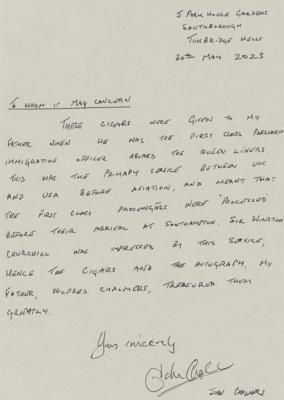 5 PARK HOUSE GARDENS
SOUTHBOROUGH
TUNBRIDGE WELLS
30TH MAY 2023
TO WHOM IT MAY CONCERN
THESE CIGARS WERE GIVEN TO MY
FATHER WHEN HE WAS THE FIRST CLASS PASSENGER
IMMIGRATION OFFICER ABOARD THE QUEEN LINERS.
THIS WAS THE PRIMARY SERVICE BETWEEN UK
AND USA BEFORE AVIATION, AND MEANT THAT
THE FIRST CLASS PASSENGERS WERE 'PROCESSED'
BEFORE THEIR ARRIVAL AT SOUTHAMPTON. SIR WINSTON
CHURCHILL WAS IMPRESSED BY THIS SERVICE,
HENCE THE CIGARS AND THE AUTOGRAPH. MY
FATHER, WILFRED CHALMERS, TREASURED THEM
GREATLY.
Yours sincerely
JOHN CHALMERS